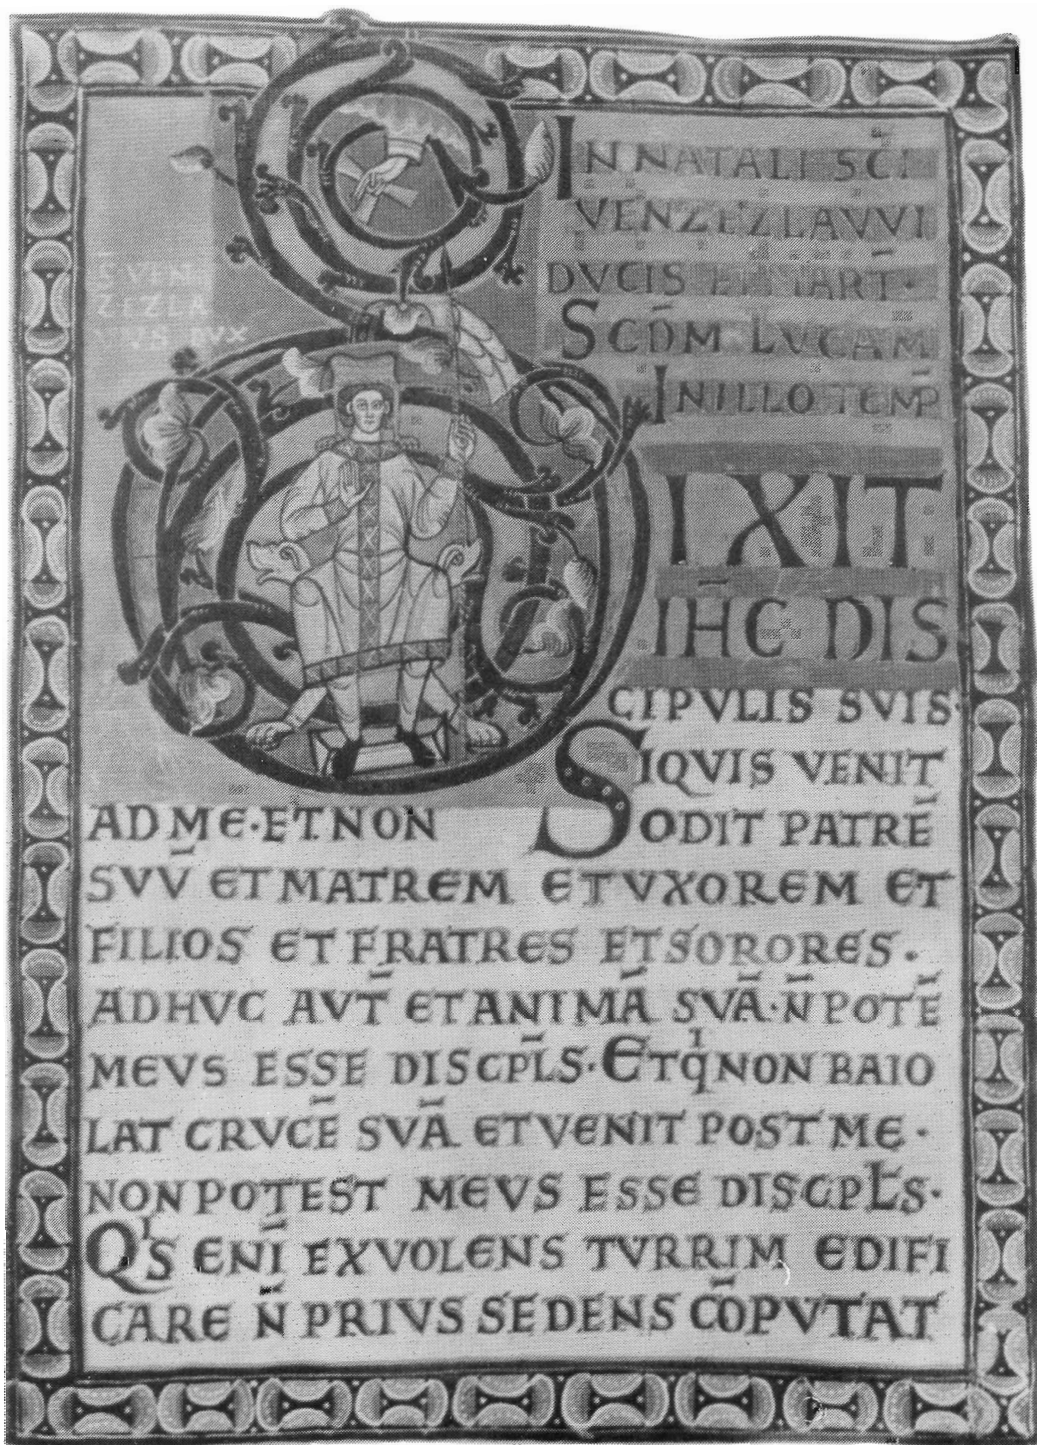 S̄ VEN
ZEZLA
VVS DVX
IN NATALI SC̄I
VENZEZLAVVI
DVCIS ET MART̄·
SCD̄M LVCAM
IN ILLO TEMP̄
DIXIT
IH̄C DIS
CIPVLIS SVIS·
SIQVIS VENIT
AD ME·ET NON
ODIT PATRĒ
SVV̄ ET MATREM ET VXOREM ET
FILIOS ET FRATRES ET SORORES·
ADHVC AVT̄ ET ANIMĀ SVĀ·N̄ POTĒ
MEVS ESSE DISCPL̄S·ET qͥ NON BAIO
LAT CRVCĒ SVĀ ET VENIT POST ME·
NON POTEST MEVS ESSE DISCPL̄S·
QͥS ENĪ EX VOLENS TVRRIM EDIFI
CARE N̄ PRIVS SEDENS CŌPVTAT